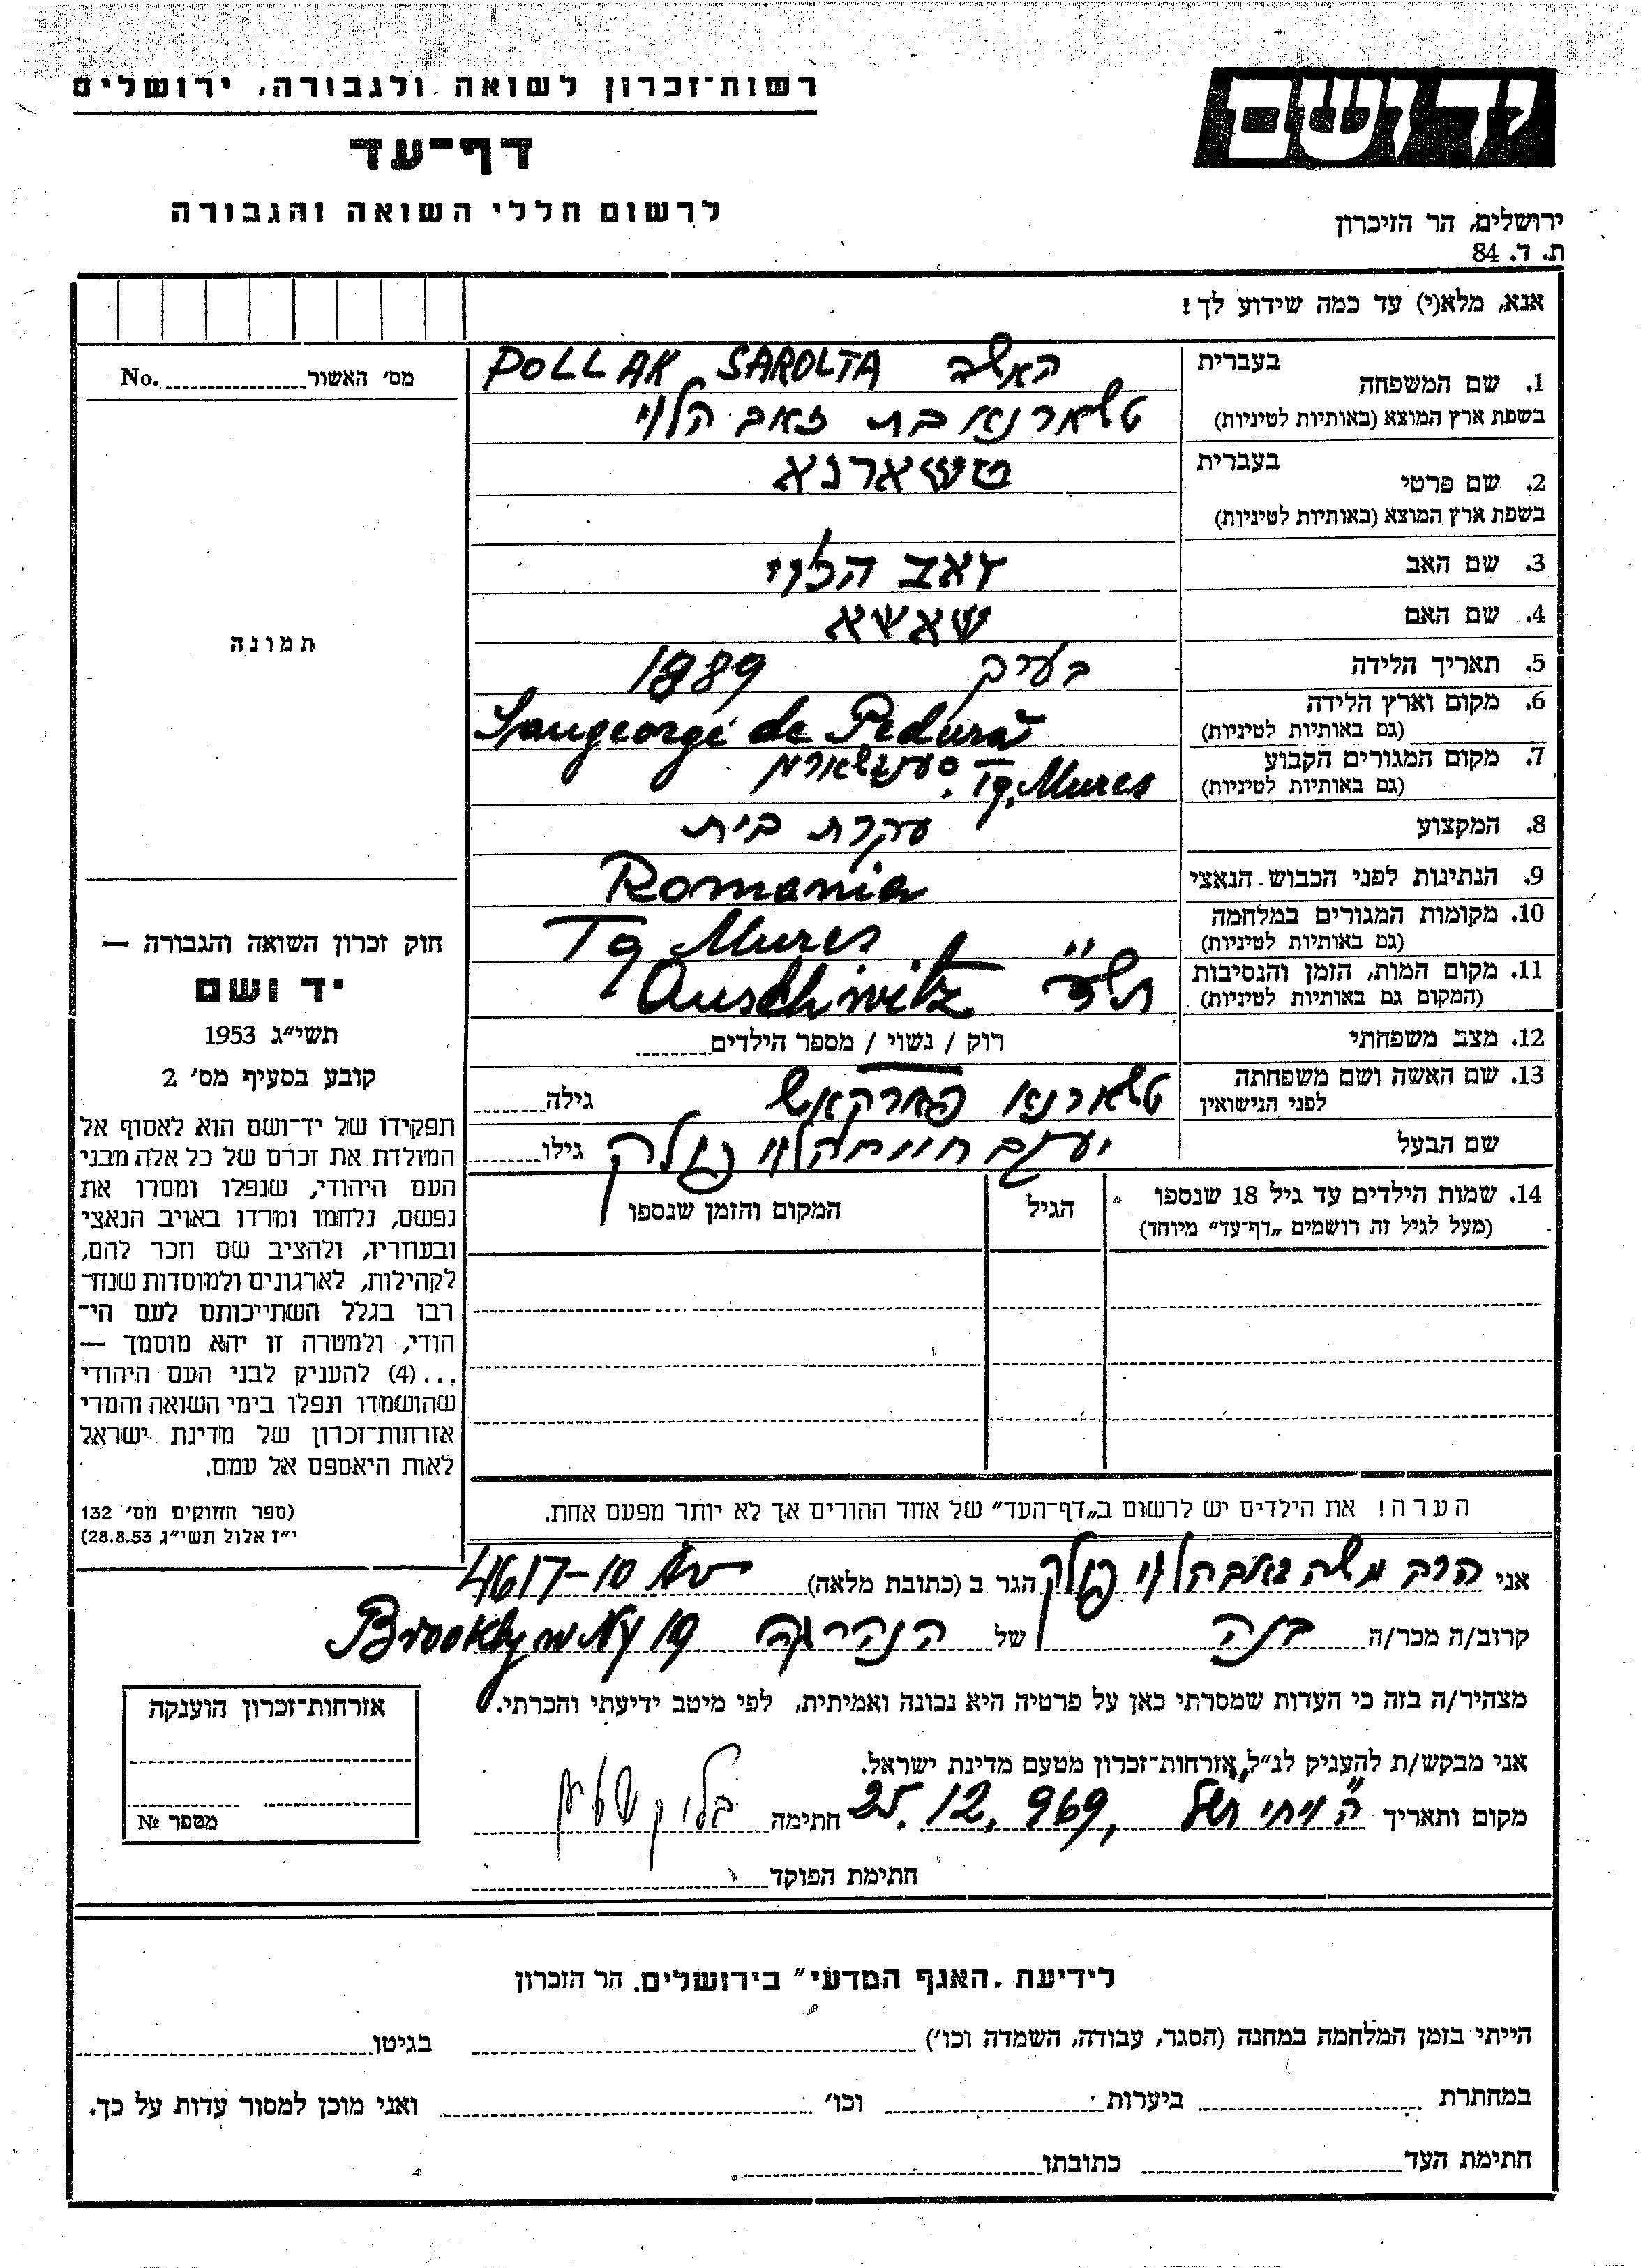 רשות־זכרון לשואה ולגבורה, ירושלים
דף־עד
לרשום חללי השואה והגבורה
יד ושם
ירושלים, הר הזיכרון
ת. ד. 84
אנא, מלא(י) עד כמה שידוע לך!
מס' האשור No.
תמונה
1. שם המשפחה בעברית האשה POLLAK SAROLTA
בשפת ארץ המוצא (באותיות לטיניות) טשארנא בת זאב הלוי
2. שם פרטי בעברית טשארנא
בשפת ארץ המוצא (באותיות לטיניות)
3. שם האב זאב הלוי
4. שם האם שאשא
5. תאריך הלידה בערך 1889
6. מקום וארץ הלידה
(גם באותיות לטיניות) Sangeorgi de Padura
7. מקום המגורים הקבוע
(גם באותיות לטיניות) Tg. Mures
8. המקצוע עקרת בית
9. הנתינות לפני הכבוש הנאצי Romania
10. מקומות המגורים במלחמה
(גם באותיות לטיניות) Tg Mures
11. מקום המות, הזמן והנסיבות
(המקום גם באותיות לטיניות) תש"ד Auschwitz
12. מצב משפחתי רוק / נשוי / מספר הילדים
13. שם האשה ושם משפחתה
לפני הנישואין טשארנא פארקאש גילה
שם הבעל יעקב חיים הלוי פולק גילו
14. שמות הילדים עד גיל 18 שנספו הגיל המקום והזמן שנספו
(מעל לגיל זה רושמים „דף־עד" מיוחד)
הערה! את הילדים יש לרשום ב„דף־העד" של אחד ההורים אך לא יותר מפעם אחת.
חוק זכרון השואה והגבורה —
יד ושם
תשי"ג 1953
קובע בסעיף מס' 2
תפקידו של יד־ושם הוא לאסוף אל
המולדת את זכרם של כל אלה מבני
העם היהודי, שנפלו ומסרו את
נפשם, נלחמו ומרדו באויב הנאצי
ובעוזריו, ולהציב שם וזכר להם,
לקהילות, לארגונים ולמוסדות שנח־
רבו בגלל השתייכותם לעם הי־
הודי, ולמטרה זו יהא מוסמך —
...(4) להעניק לבני העם היהודי
שהושמדו ונפלו בימי השואה והמרי
אזרחות־זכרון של מדינת ישראל
לאות היאספם אל עמם.
(ספר החוקים מס' 132
י"ז אלול תשי"ג 28.8.53)
אני הרב משה זאב הלוי פולק הגר ב (כתובת מלאה) 4617-10 Av
קרוב/ה מכר/ה בנה של הנהרגה Brooklyn NY 19
מצהיר/ה בזה כי העדות שמסרתי כאן על פרטיה היא נכונה ואמיתית, לפי מיטב ידיעתי והכרתי.
אני מבקש/ת להעניק לנ"ל אזרחות־זכרון מטעם מדינת ישראל.
מקום ותאריך ה' ויחי תש"ל, 25.12.969 חתימה
חתימת הפוקד
אזרחות־זכרון הוענקה
מספר №
לידיעת „האגף המדעי" בירושלים. הר הזכרון
הייתי בזמן המלחמה במחנה (הסגר, עבודה, השמדה וכו') בגיטו
במחתרת ביערות וכו' ואני מוכן למסור עדות על כך.
חתימת העד כתובתו